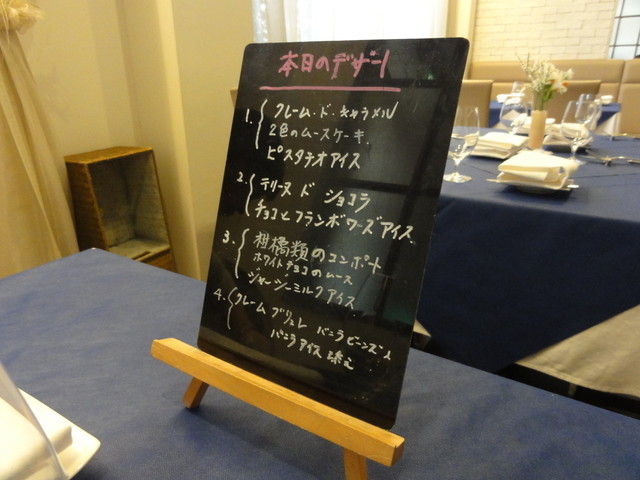 本日のデザート
1. クレーム・ド・キャラメル
2色のムースケーキ.
ピスタチオアイス
2. テリーヌ ド ショコラ
チョコとフランボワーズアイス
3. 柑橘類のコンポート
ホワイトチョコのムース
ジャージーミルクアイス
4. クレーム ブリュレ バニラビーンズ入
バニラアイス添え